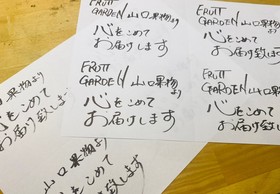 FRUTT
GARDEN 山口果物より
心をこめて
お届けします
FRUTT
GARDEN 山口果物より
心をこめて
お届け致します
FRUTT
GARDEN 山口果物より
心をこめて
お届けします
FRUTT
GARDEN 山口果物より
心をこめて
お届け致します
山口果物より
心をこめて
お届け致します
山口果物より
をこめて
届け致します